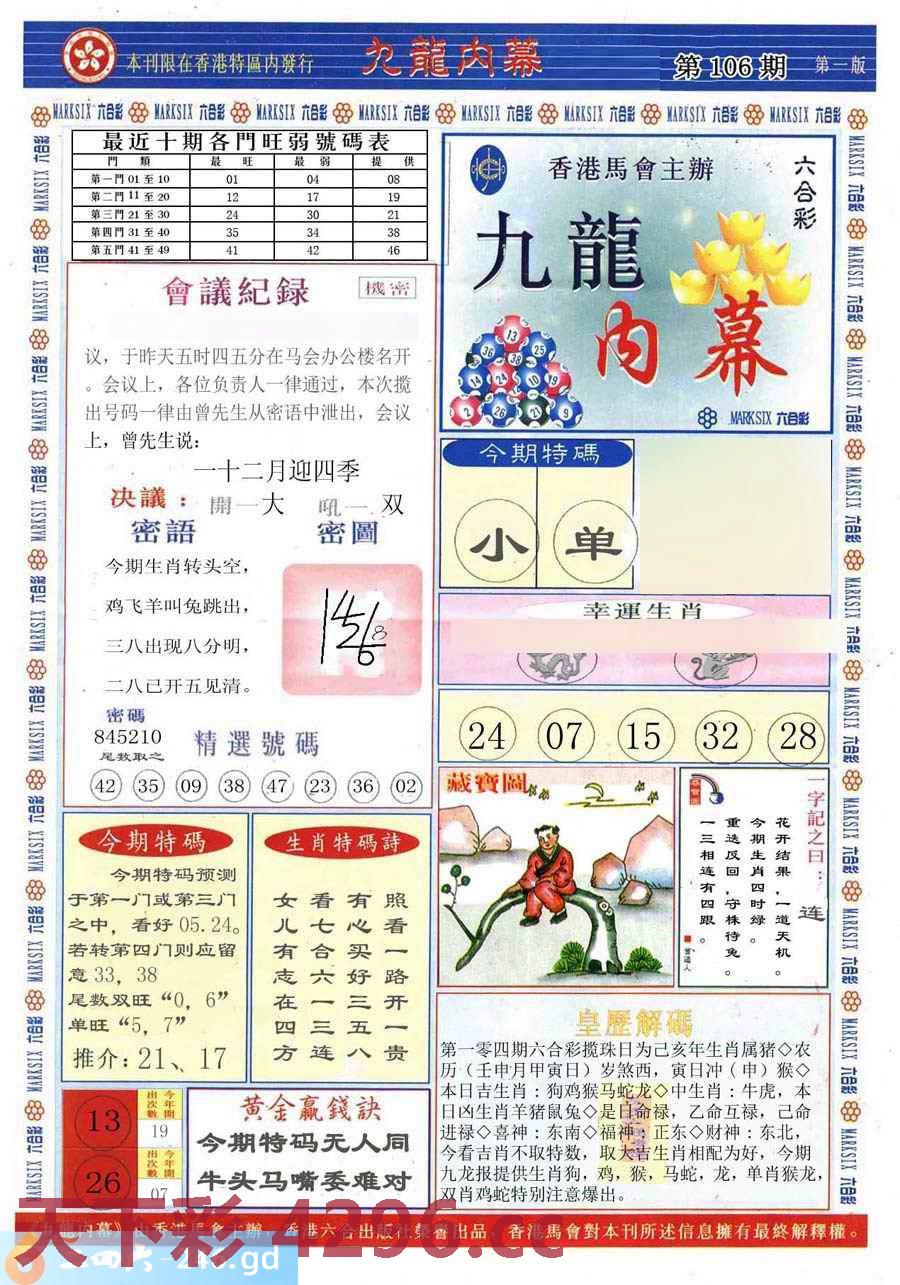 本刊限在香港特區内發行
九龍内幕
第 106 期
第一版
MARKSIX 六合彩
最近十期各門旺弱號碼表
門 類 最 旺 最 弱 提 供
第一門 01 至 10 01 04 08
第二門 11 至 20 12 17 19
第三門 21 至 30 24 30 21
第四門 31 至 40 35 34 38
第五門 41 至 49 41 42 46
會議紀録
機密
议，于昨天五时四五分在马会办公楼名开
。会议上，各位负责人一律通过，本次揽
出号码一律由曾先生从密语中泄出，会议
上，曾先生说：
一十二月迎四季
决議： 開一大 吼一 双
密語
密圖
今期生肖转头空，
鸡飞羊叫兔跳出，
三八出现八分明，
二八己开五见清。
密碼
845210
尾数取之
精選號碼
42 35 09 38 47 23 36 02
香港馬會主辦
六合彩
九龍
内幕
13
36 38 25
14 24 10 19
2 26 21 9
MARKSIX 六合彩
今期特碼
小 单
幸運生肖
24 07 15 32 28
藏寶圖
一字記之曰：连
花开结果，一道天机。
今期生肖四时绿。
重迭反回，守株待兔。
一三相连有四跟。
曾道人
今期特碼
今期特码预测
于第一门或第三门
之中，看好 05.24。
若转第四门则应留
意 33，38
尾数双旺“0，6”
单旺“5，7”
推介：21、17
生肖特碼詩
女看有照
儿七心看
有合买一
志六好路
在一三开
四三五一
方连八贵
皇歷解碼
第一零四期六合彩揽珠日为己亥年生肖属猪◇农
历（壬申月甲寅日）岁煞西，寅日冲（申）猴◇
本日吉生肖：狗鸡猴马蛇龙◇中生肖：牛虎，本
日凶生肖羊猪鼠兔◇是日命禄，乙命互禄，己命
进禄◇喜神：东南◇福神：正东◇财神：东北，
今看吉肖不取特数，取大吉生肖相配为好，今期
九龙报提供生肖狗，鸡，猴，马蛇，龙，单肖猴龙，
双肖鸡蛇特别注意爆出。
13
今年開出次數
19
26
今年開出次數
07
黄金贏錢訣
今期特码无人同
牛头马嘴委难对
《九龍内幕》由香港馬會主辦，香港六合出版社榮譽出品。香港馬會對本刊所述信息擁有最終解釋權。
天下彩 4296.cc
二四六-246.gd